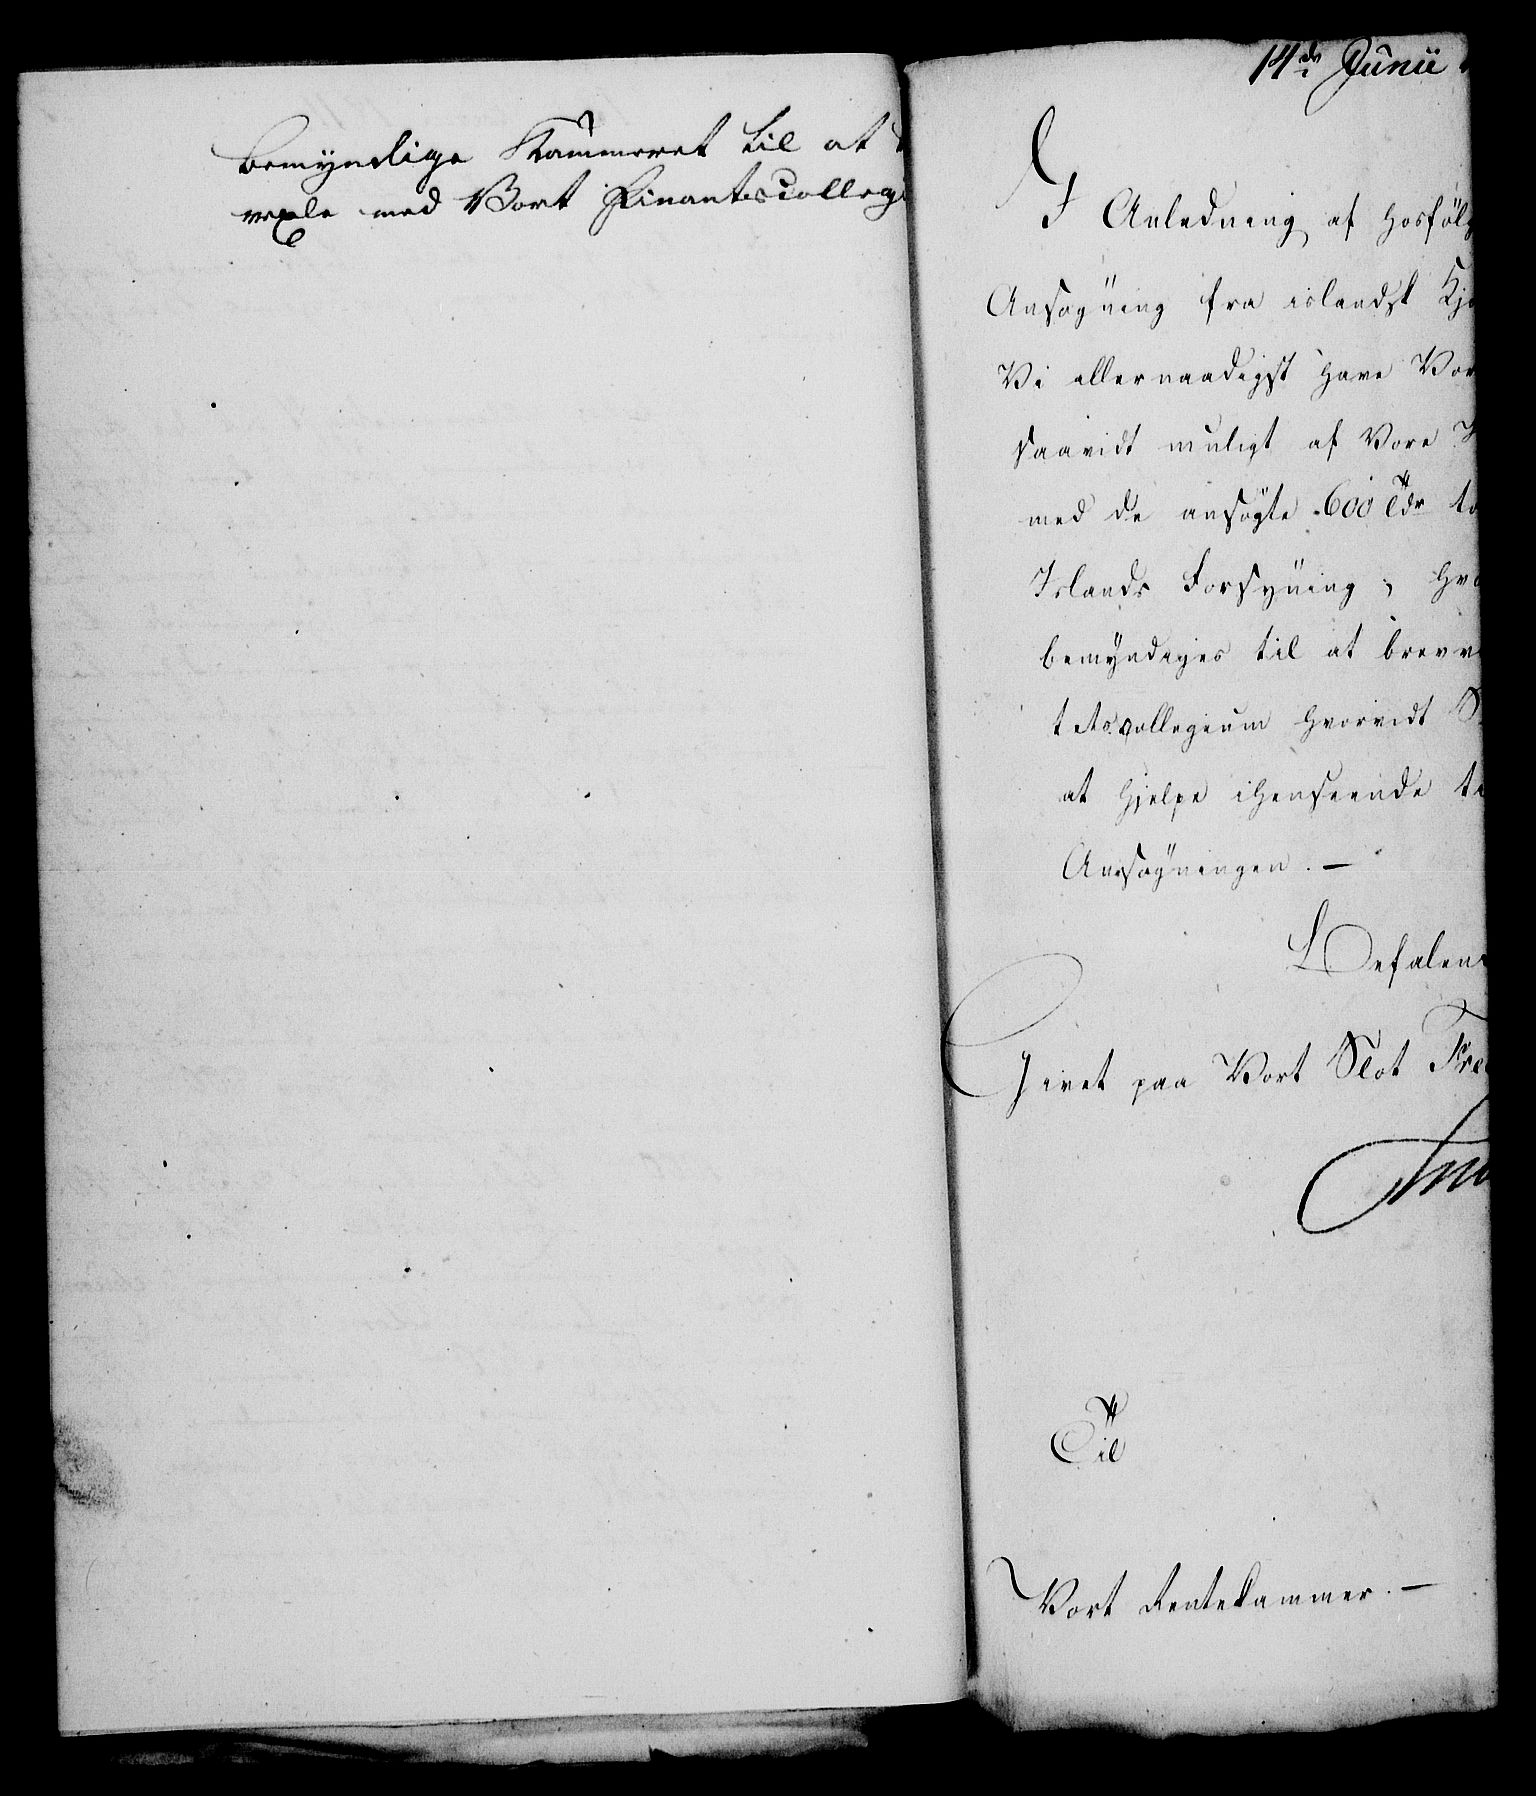 bemyndige Kammeret til at
vexle med Vort Finantscolleg
14de Junii
I Anledning af hosføl
Ansøgning fra islandsk Kjø
Vi allernaadigst have Vor
saavidt muligt af Vore
med de ansøgte 600 Tdr
Islands Forsyning, hvo
bemyndiges til at brevve
tetscollegium hvorvidt
at hjelpe ihenseende ti
Ansøgningen. —
Befalen
Givet paa Vort Slot Fre
Til
Vort Rentekammer. —